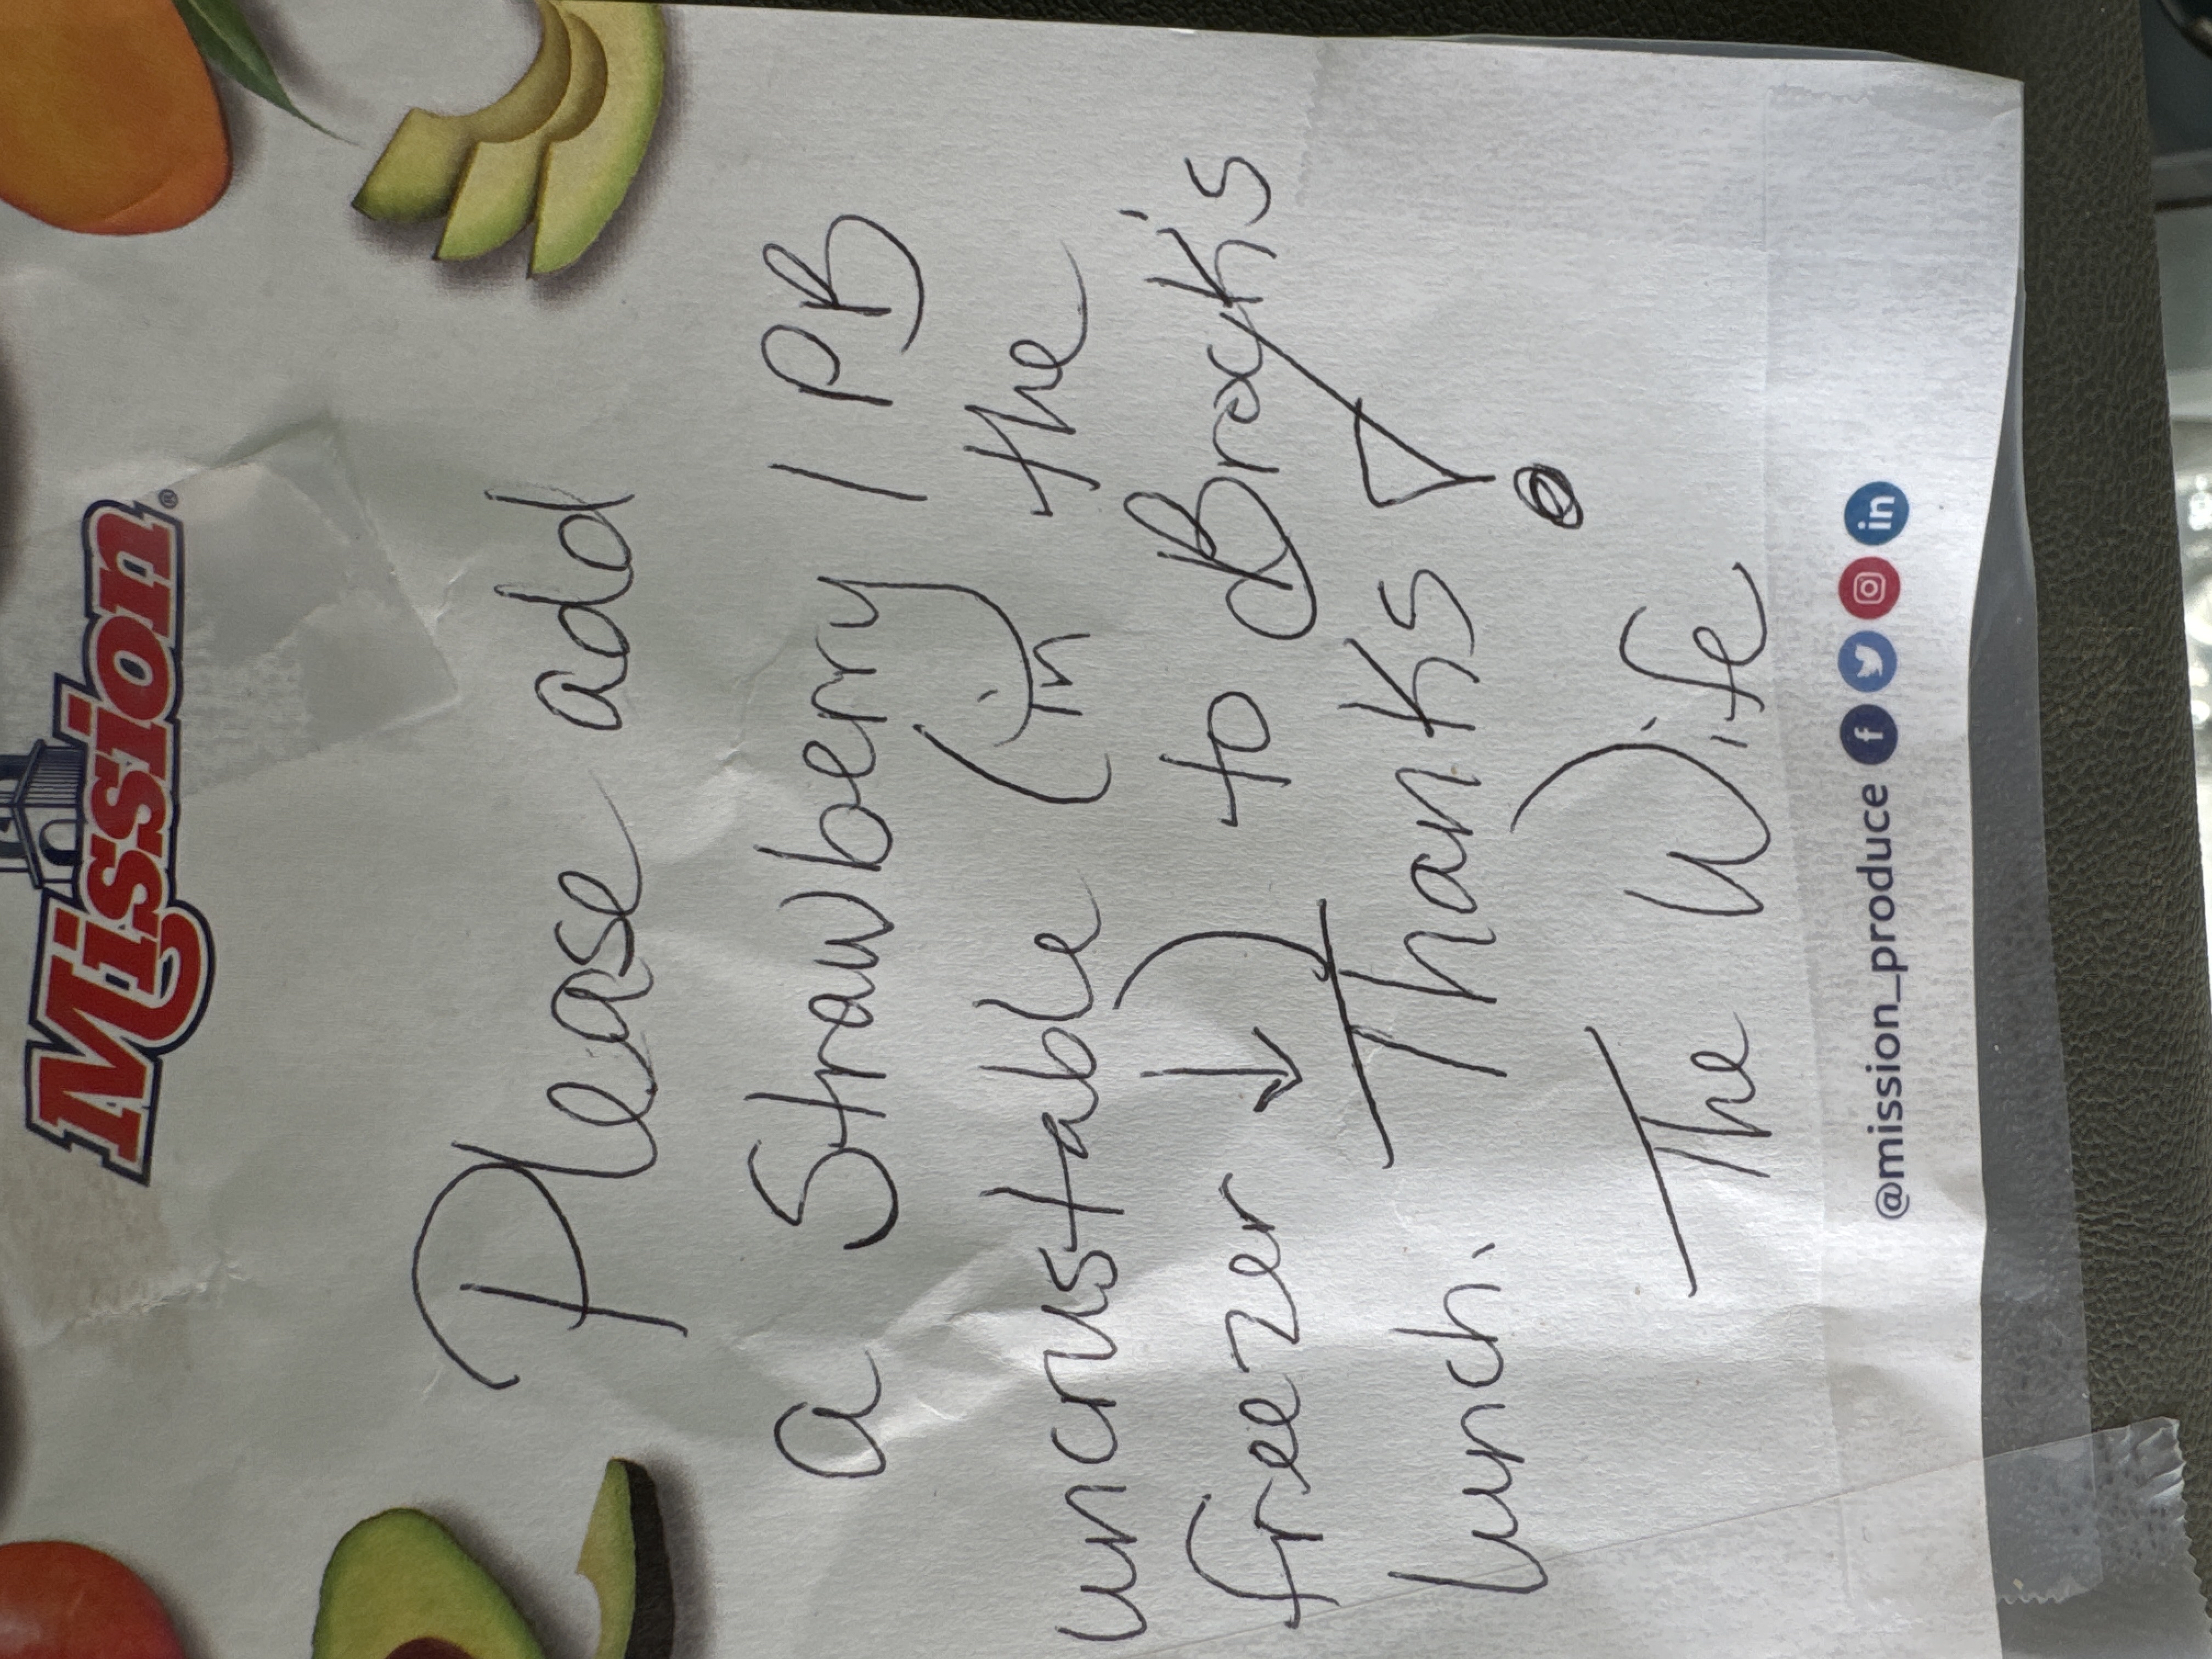 Mission®
Please add
a Strawberry / PB
uncrustable (in the
freezer ↓) to Brayk's
lunch. Thanks!
The Wife
@mission_produce f in